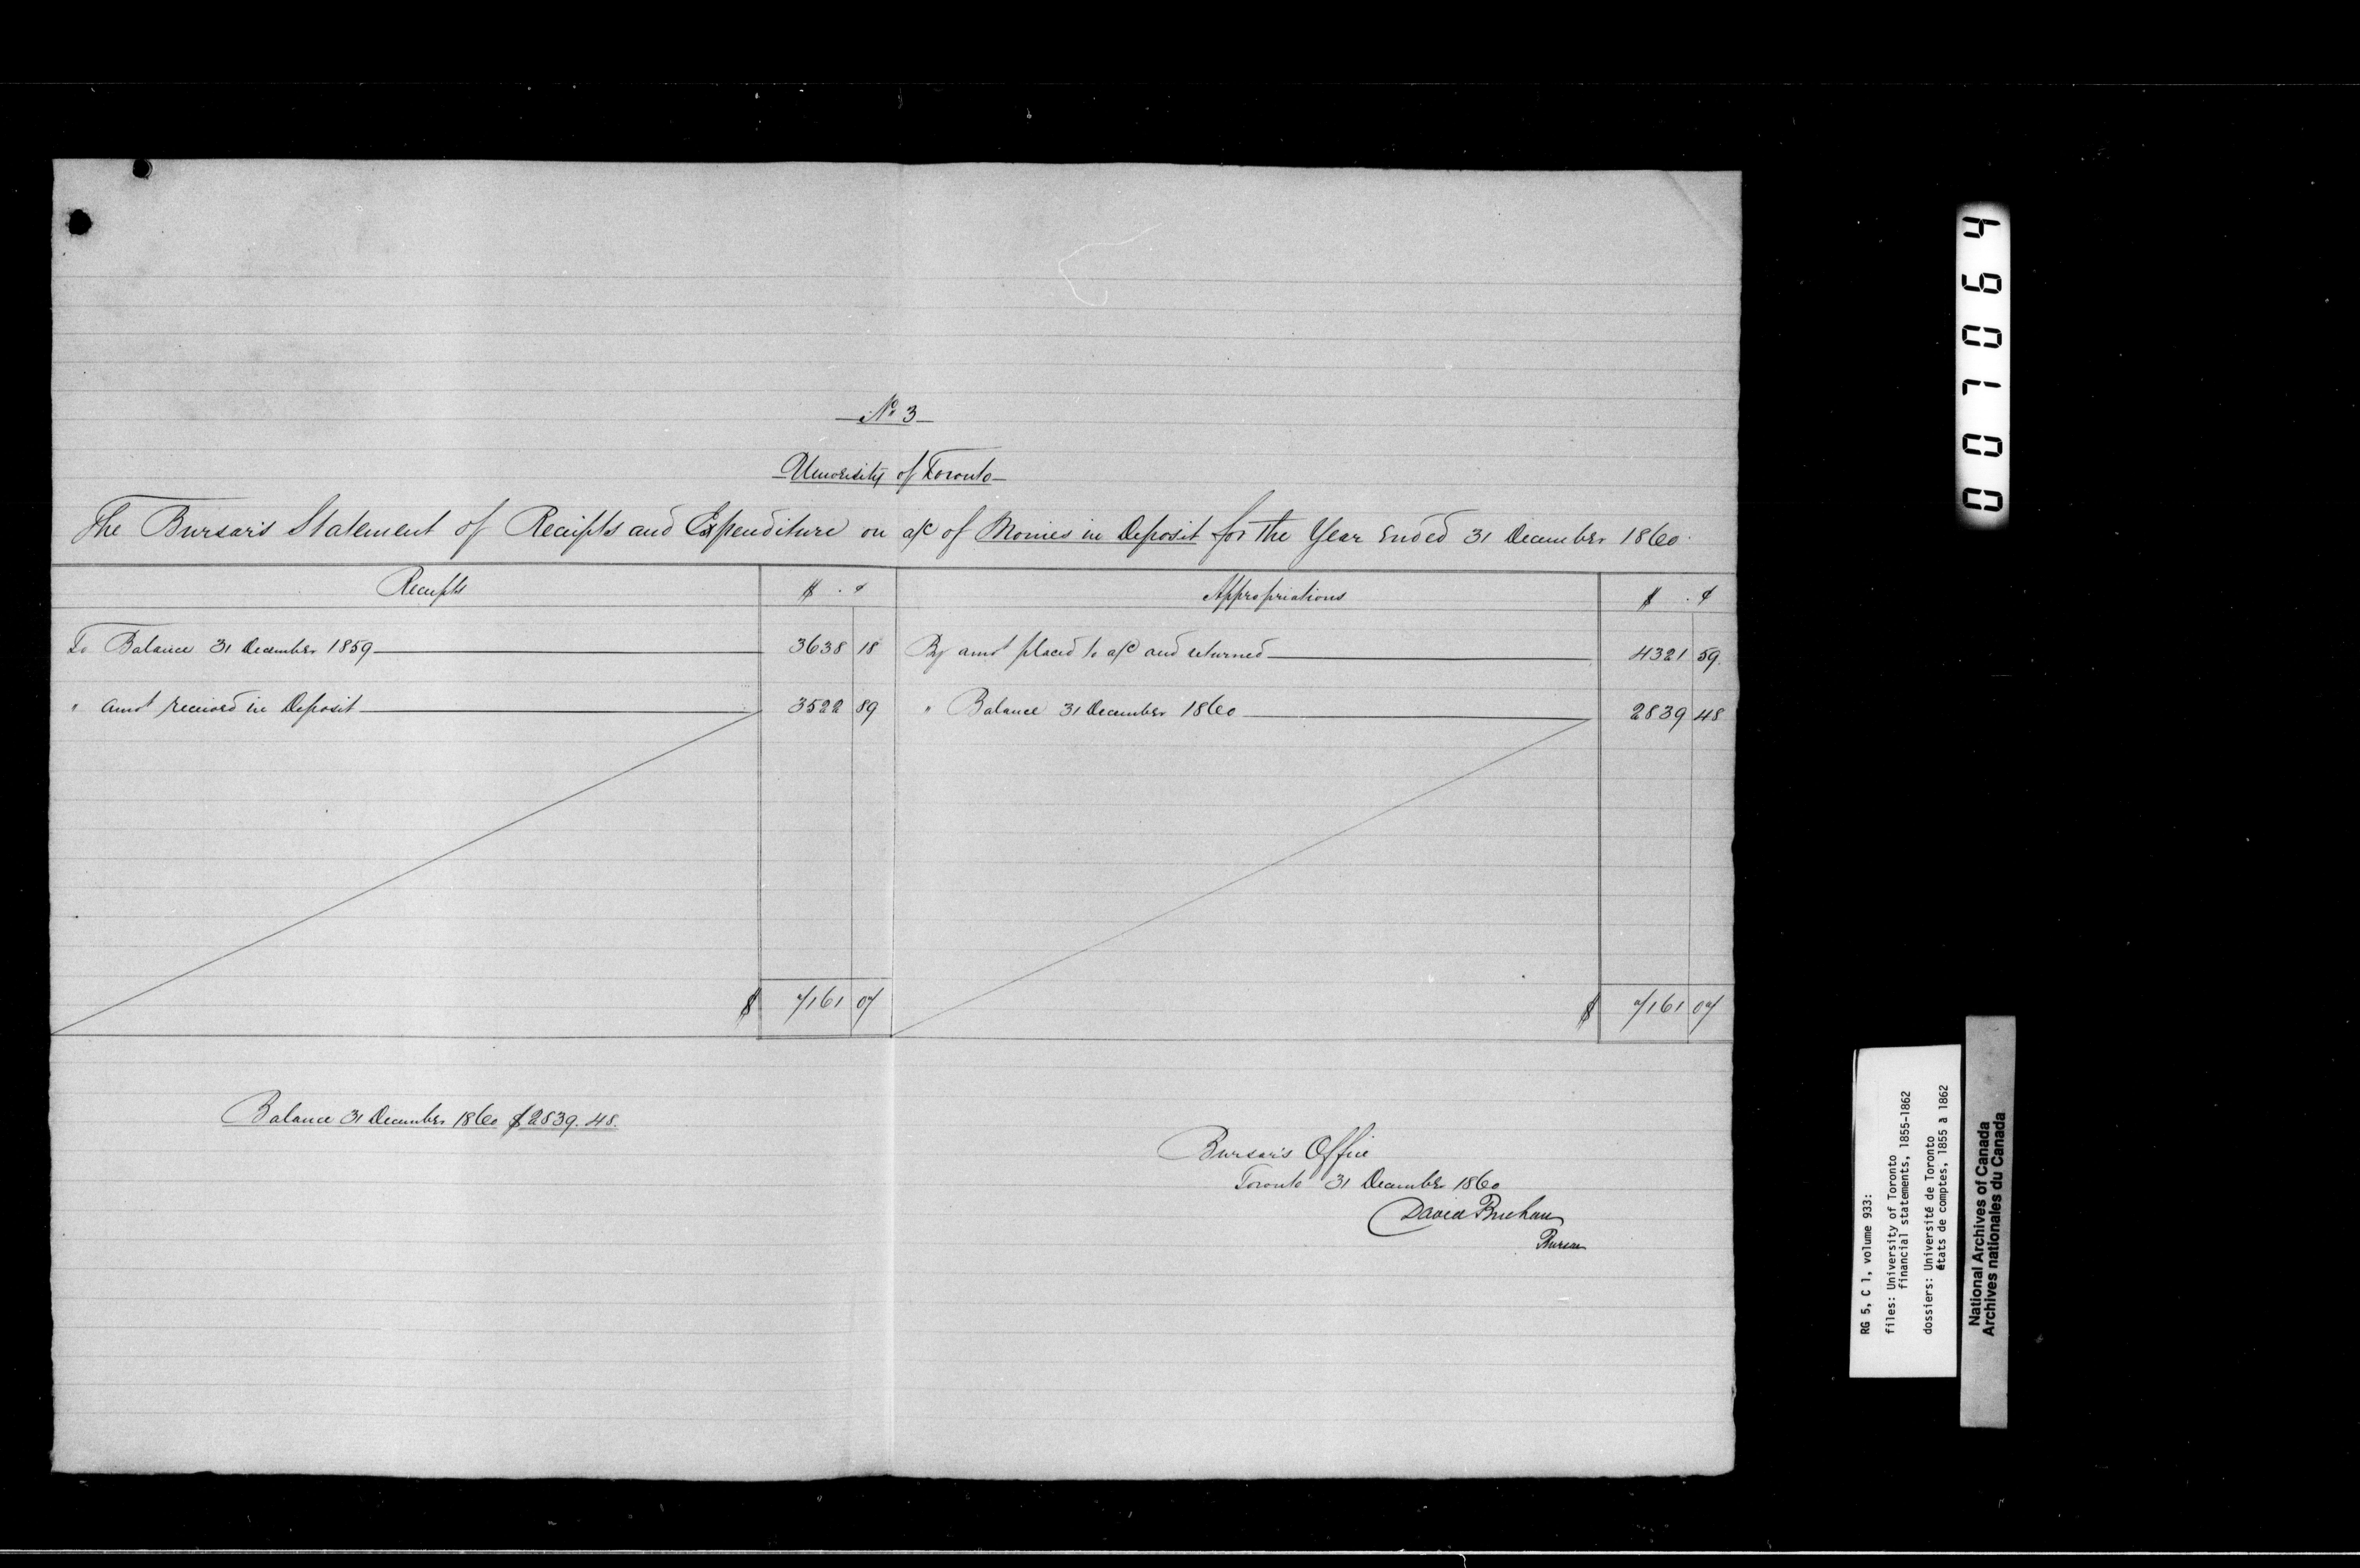 No 3
University of Toronto
The Bursar's Statement of Receipts and Expenditure on a/c of Monies in Deposit for the Year Ended 31 December 1860.
Receipts $ . ¢ Appropriations $ . ¢
To Balance 31 December 1859 3638 18 By amot placed to a/c and returned 4321 59.
" amot received in Deposit 3522 89 " Balance 31 December 1860 2839 48
$ 7161 07 $ 7161 07
Balance 31 December 1860 $2839.48.
Bursar's Office
Toronto 31 December 1860
David Buchan
Bursar
007064
RG 5, C 1, volume 933:
files: University of Toronto
financial statements, 1855-1862
dossiers: Université de Toronto
états de comptes, 1855 à 1862
National Archives of Canada
Archives nationales du Canada